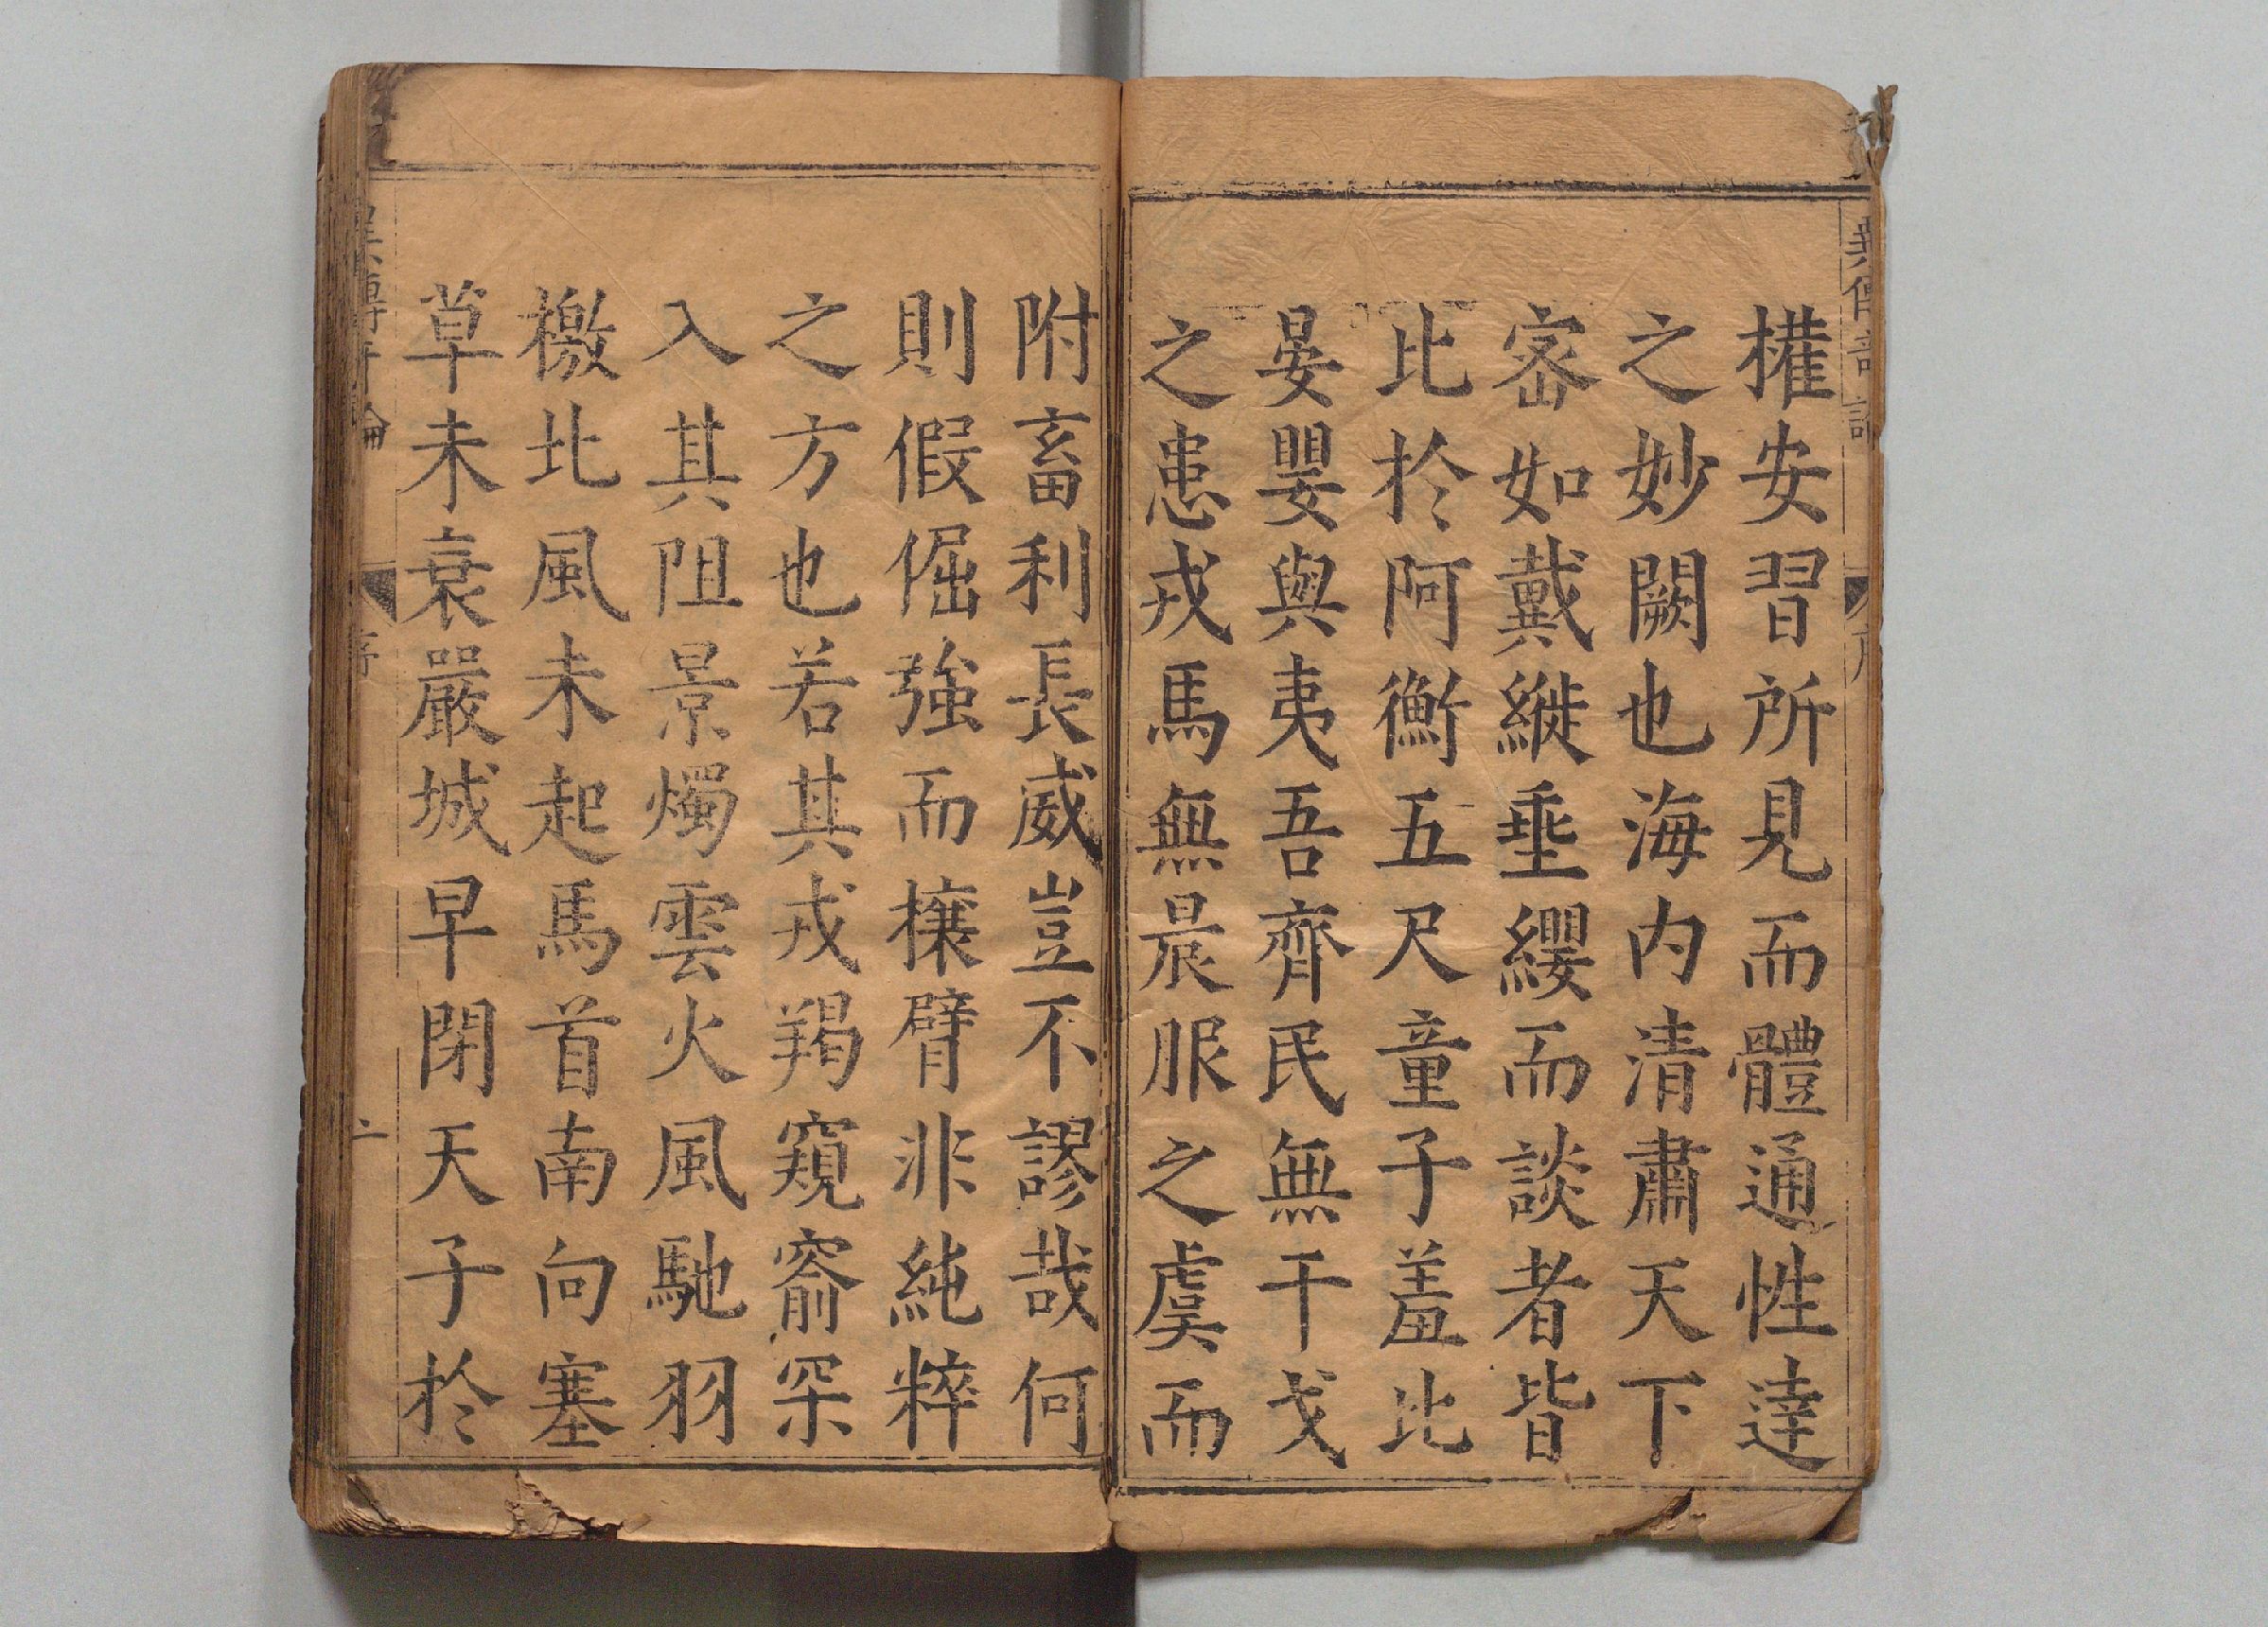 權安習所見而體通性達
之妙闕也海内清肅天下
宻如戴縰垂纓而談者皆
比於阿衡五尺童子羞比
晏嬰與夷吾齊民無干戈
之患戎馬無晨服之虞而
附畜利長威豈不謬哉何
則假倔強而攘臂非純粹
之方也若其戎羯窺窬深
入其阻景燭雲火風馳羽
檄北風未起馬首南向塞
草未衰嚴城早閉天子於
序